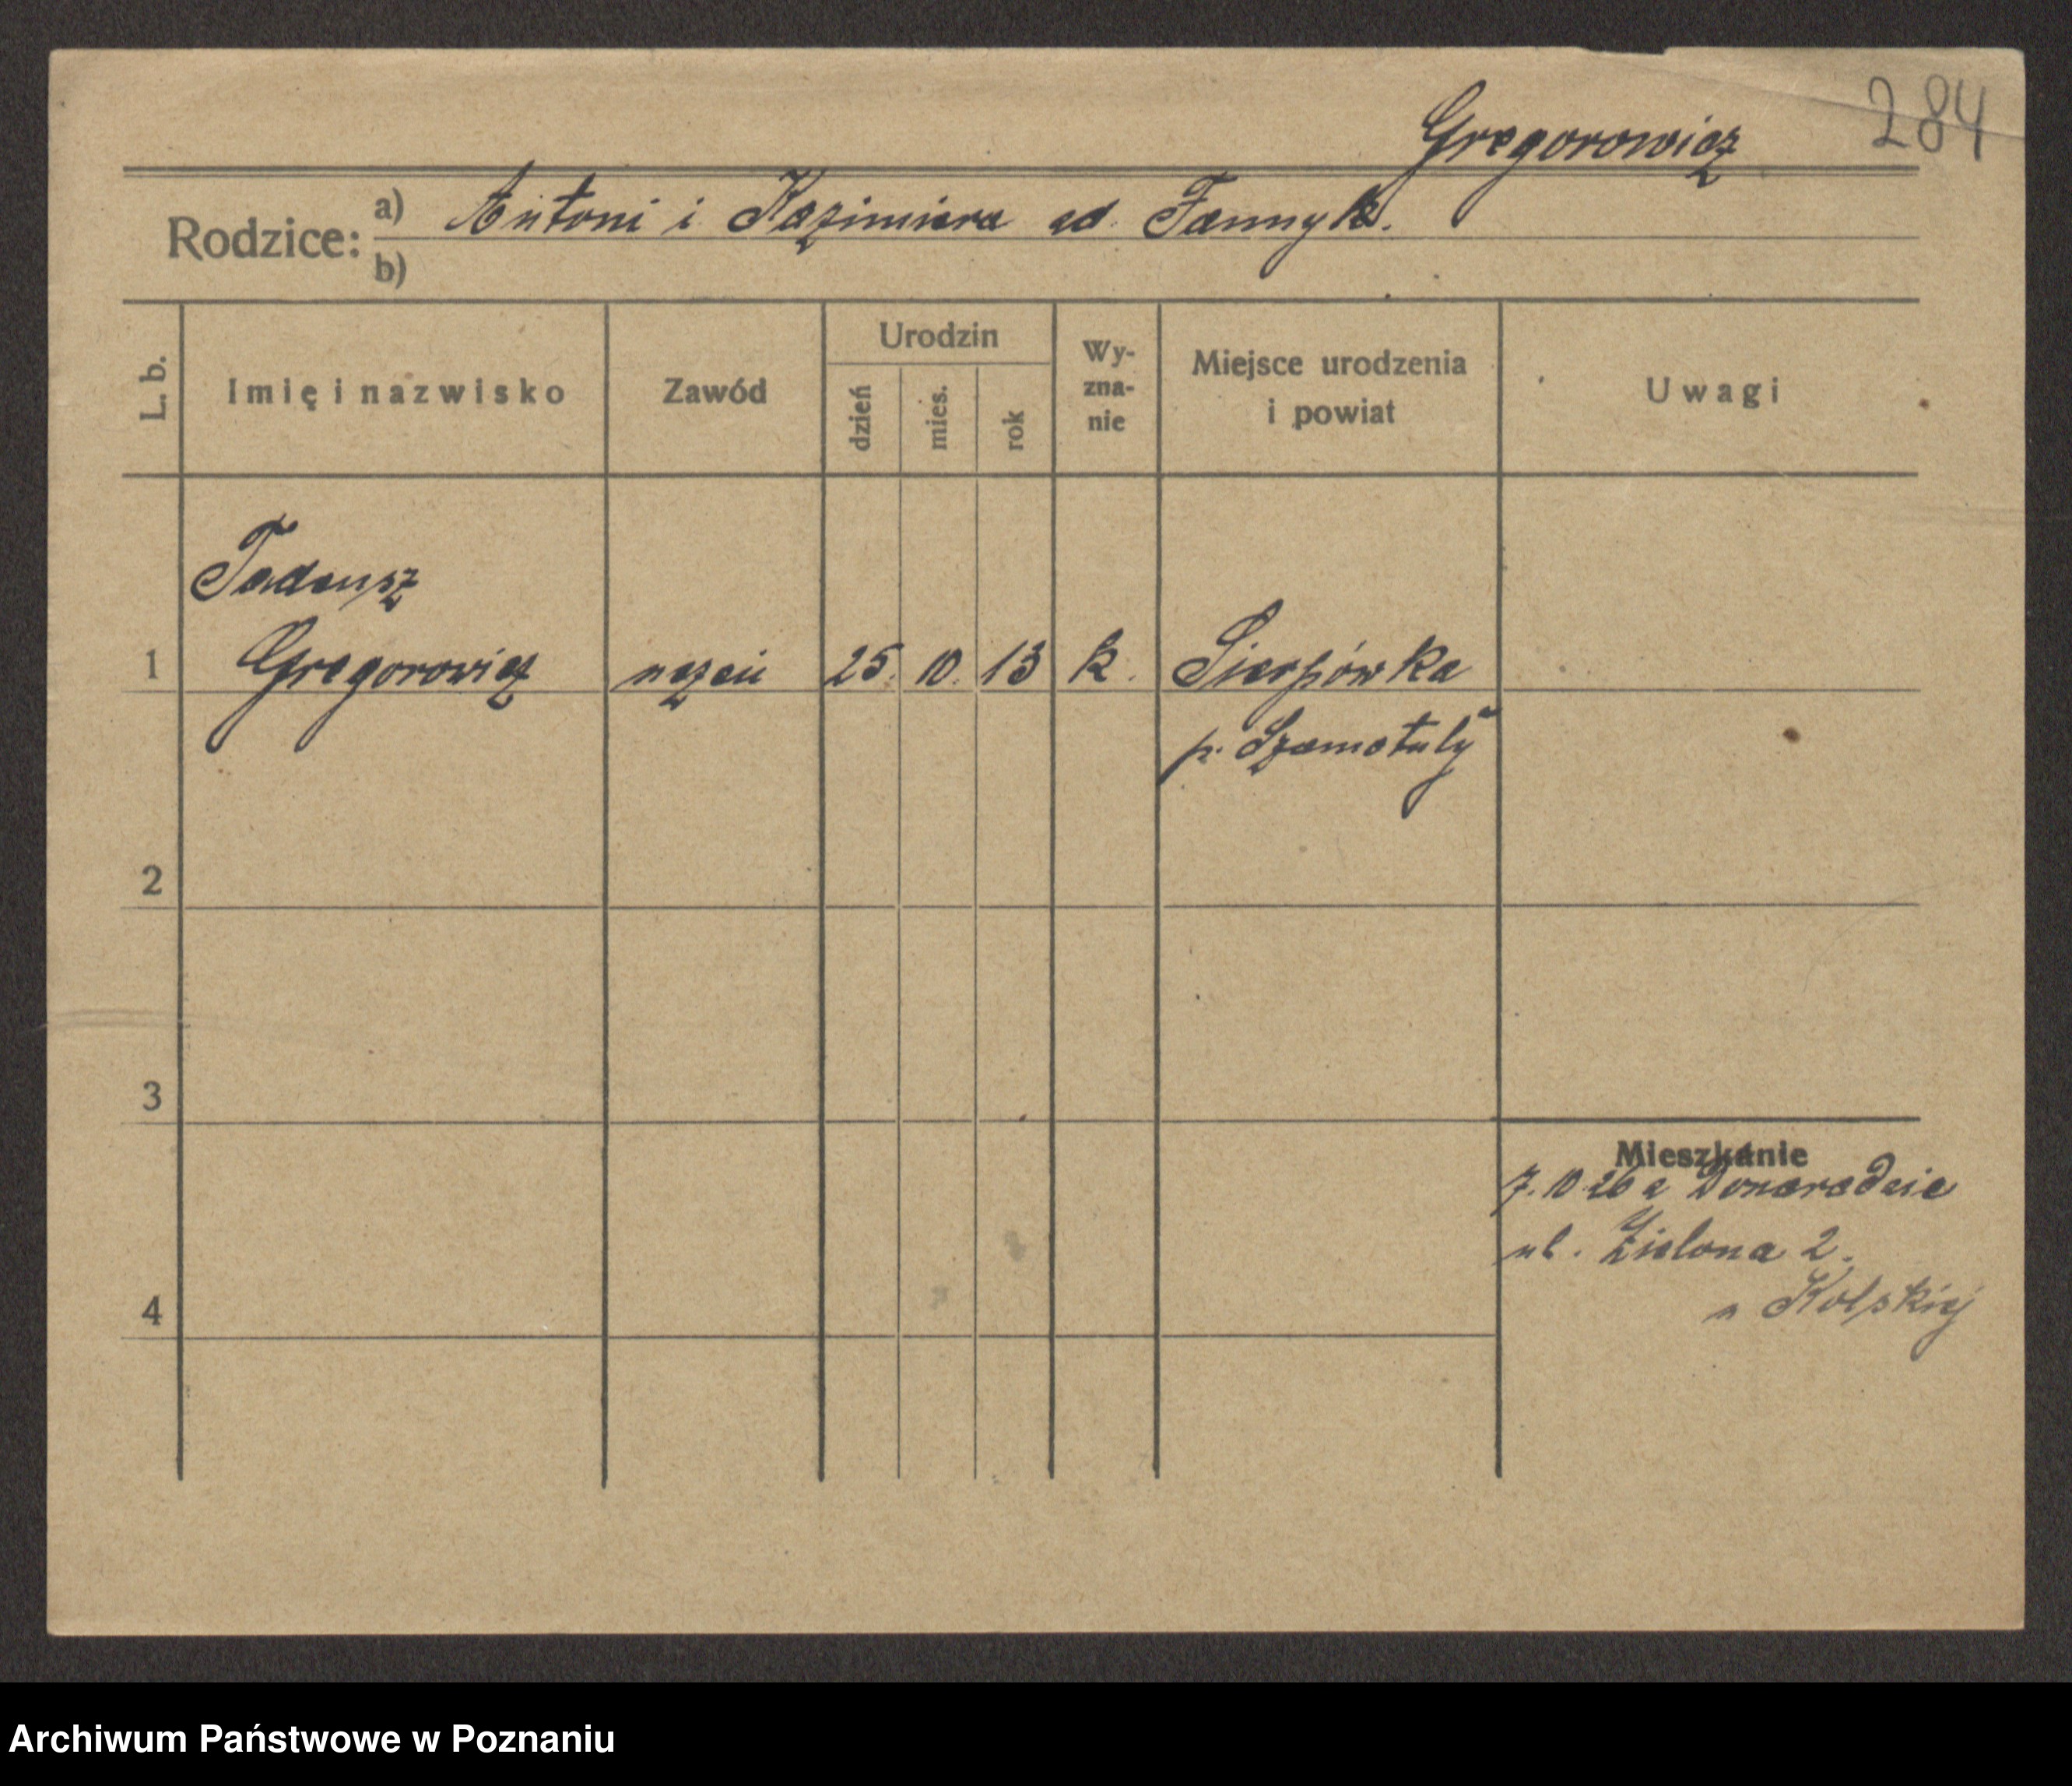 284
Gregorowicz
Rodzice: a) Antoni i Kazimiera
b)
L. b.
Imię i nazwisko
Zawód
Urodzin
dzień
mies.
rok
Wy-
zna-
nie
Miejsce urodzenia
i powiat
Uwagi
Tadeusz
1 Gregorowicz uczeń 25. 10. 13 k. Sierpówka
p. Szamotuły
2
3
Mieszkanie
7. 10 26 z
ul. Zielona 2.
4
u Kolskiej
Archiwum Państwowe w Poznaniu